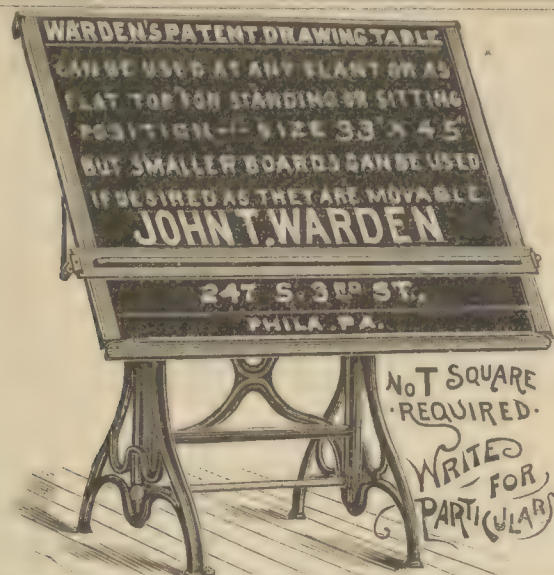 WARDEN'S PATENT DRAWING TABLE
CAN BE USED AT ANY SLANT OR AS
FLAT TOP FOR STANDING OR SITTING
POSITION — SIZE 33 X 45
BUT SMALLER BOARDS CAN BE USED
IF DESIRED AS THEY ARE MOVABLE
JOHN T. WARDEN
247 S. 3RD ST.,
PHILA. PA.
NO T SQUARE
·REQUIRED·
WRITE
FOR
PARTICULARS